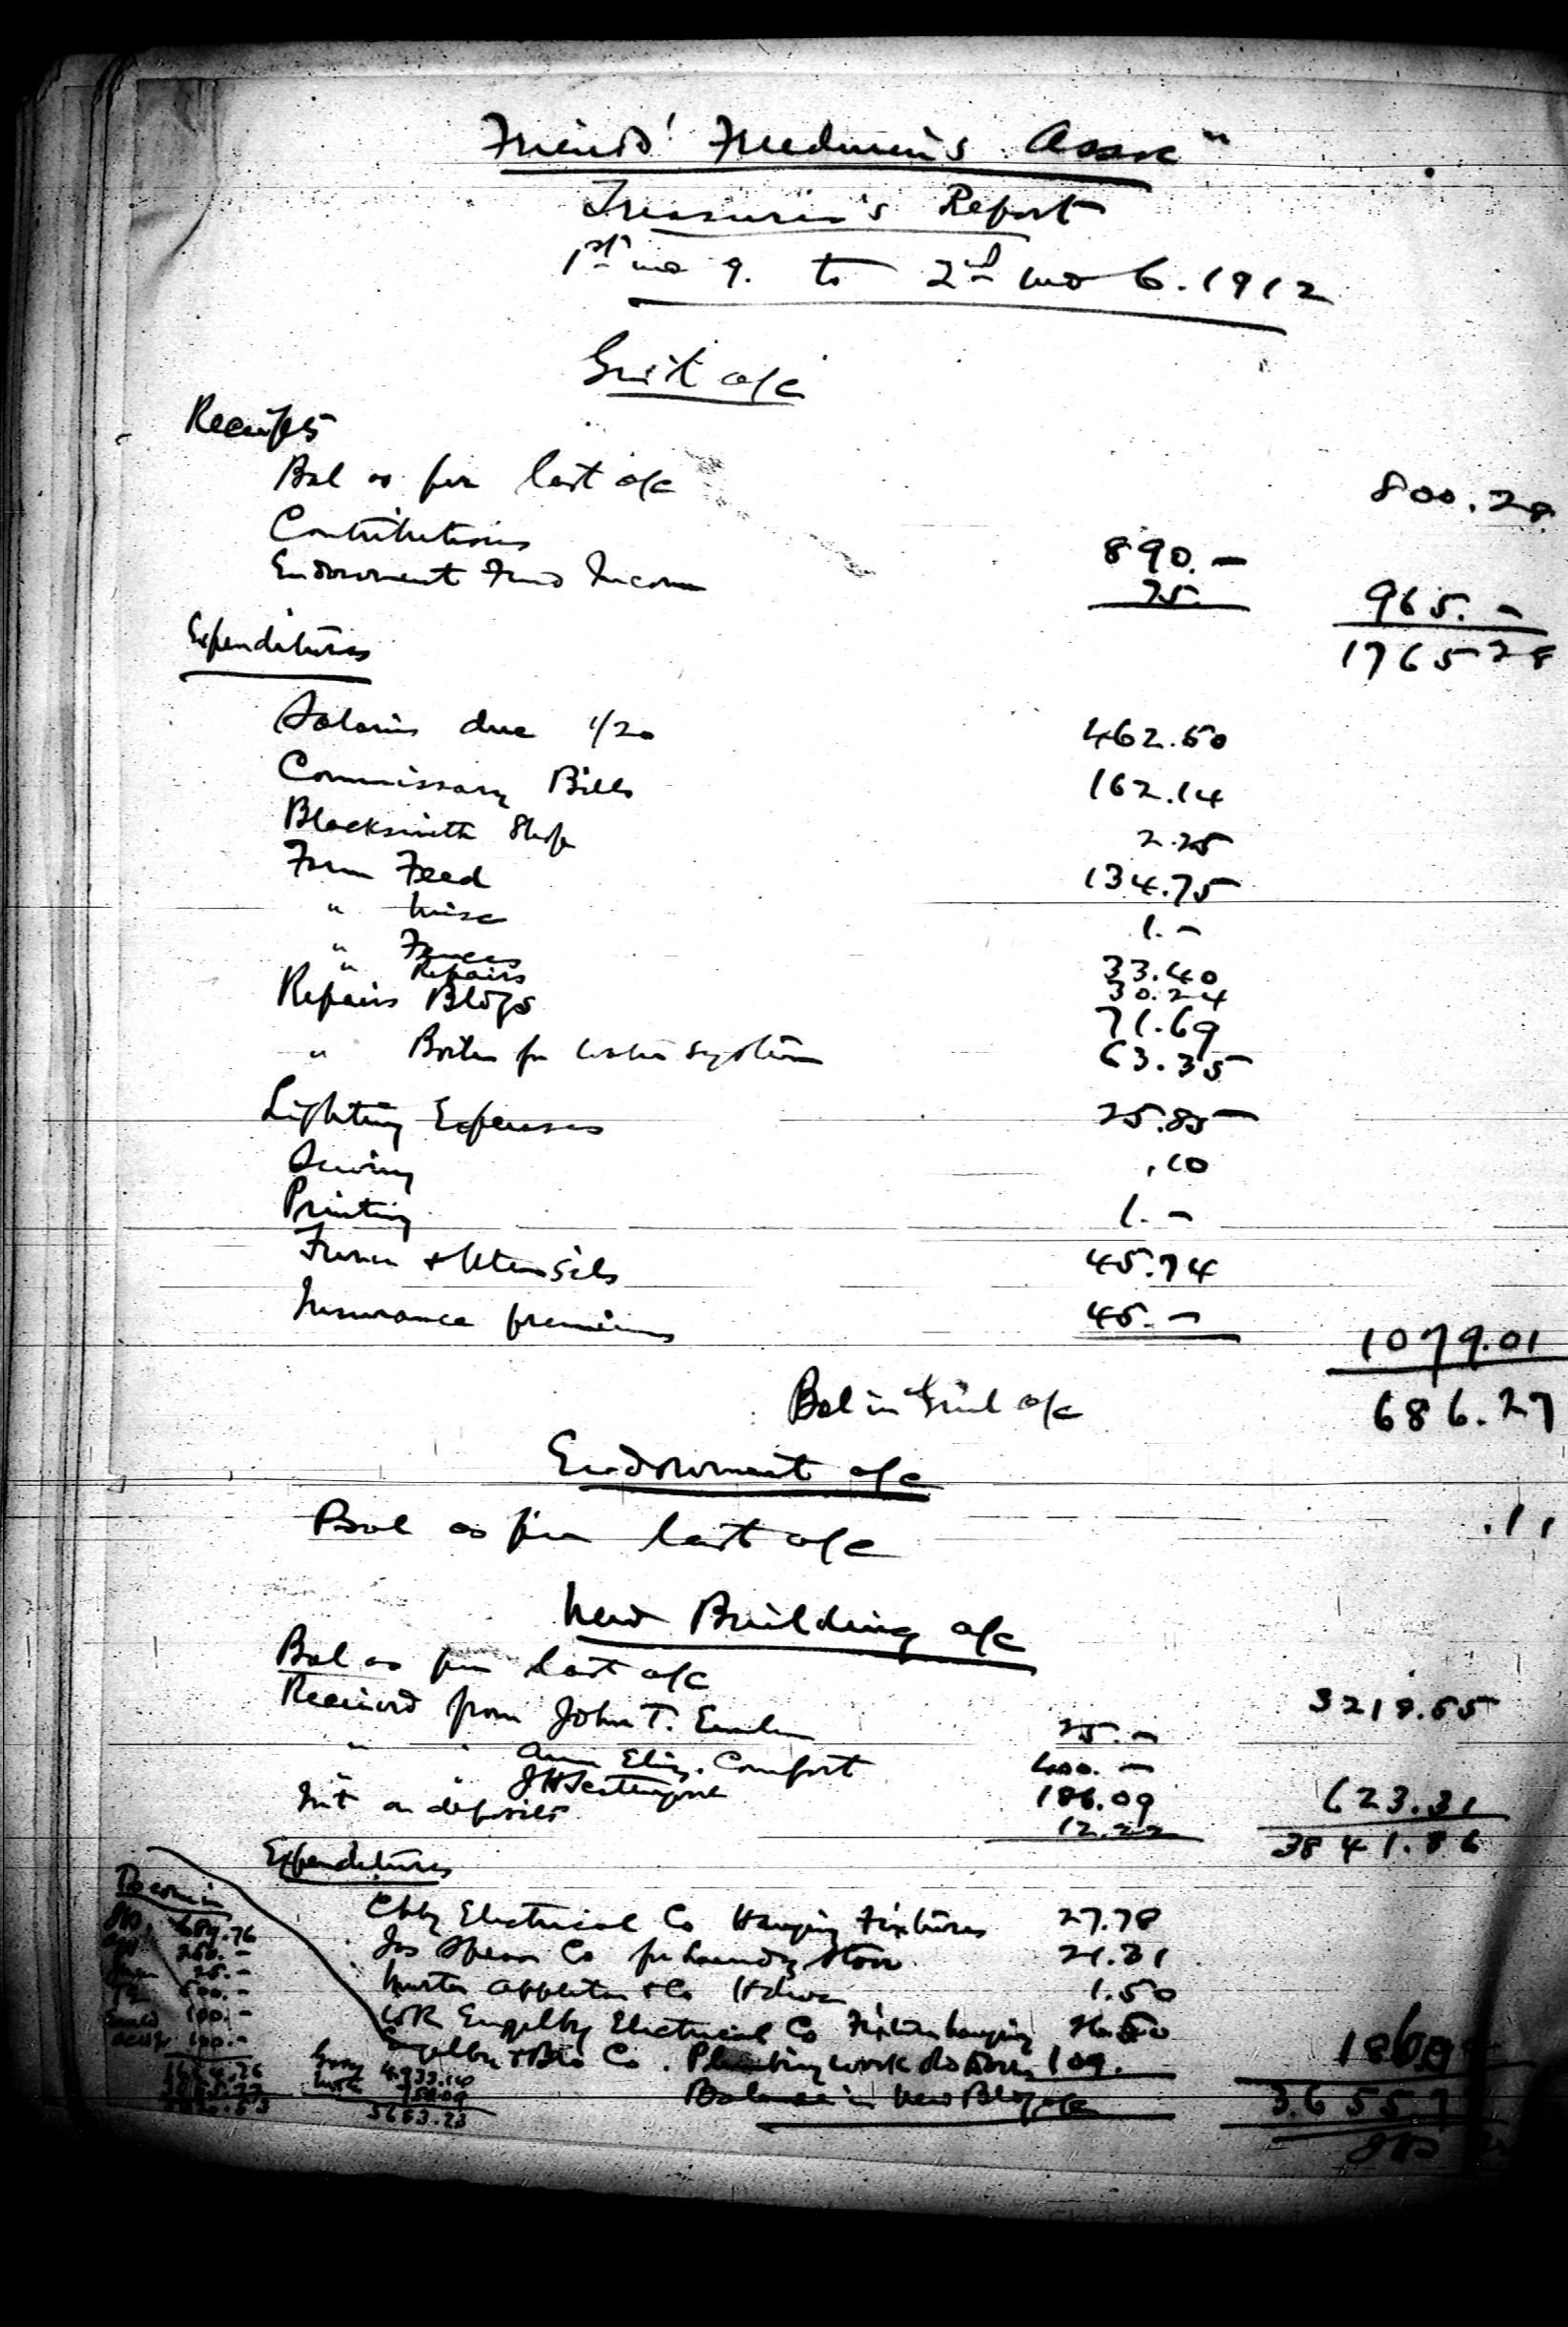 Friends' Freedmen's Assocn
Treasurer's Report
1st mo 9. to 2nd mo 6. 1912
Genl a/c
Receipts
Bal as per last a/c 800.28
Contributions 890.—
Endowment Fund Income 75. 965.—
1765 28
Expenditures
Salaries due 1/20 462.50
Commissary Bills 162.14
Blacksmith Shop 2.25
Farm Feed 134.75
" misc 1.—
" Fences 33.40
" Repairs 30.24
Repairs Bldgs 71.69
" Boiler for water system 63.35
Lighting Expenses 25.85
Sewing .10
Printing 1.—
Furn & Utensils 45.74
Insurance premiums 45.— 1079.01
Bal in Genl a/c 686.27
Endowment a/c
Bal as per last a/c .11
New Building a/c
Bal as per last a/c 3218.55
Received from John T. Emlen 25.—
" " Ann Eliz. Comfort 400.—
" " JH 186.09
Int on deposits 12.22 623.31
3841.86
Expenditures
Electrical Co Hanging Fixtures 27.78
Jas Spear Co for Laundry Stove 21.31
Appleton & Co Hdwr 1.50
WR Engelby Electrical Co Fixture hanging
Engelby & Bro Co. Plumbing work 109.
Balance in New Bldg a/c
689.76
25.—
500.—
100.—
100.—
5683.23